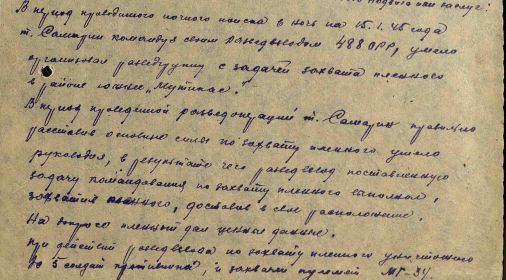 В период проводимого ночного поиска в ночь на 15.1.45 года
т. Самарин командуя своим разведвзводом 488 ОРР, умело
организовал разведгруппу с задачей захвата пленного
в районе южнее „Мутикас".
В период проведенной разведоперации т. Самарин правильно
расставив основные силы по захвату пленного умело
руководил, в результате чего разведвзвод поставленную
задачу командования по захвату пленного выполнил,
захватив пленного, доставив в свое расположение.
На допросе пленный дал ценные данные.
При действии разведвзвода по захвату пленного уничтожено
до 5 солдат противника, и захвачен пулемет МГ-34.